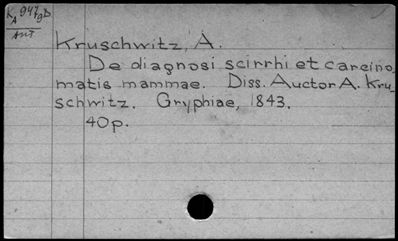 K 947gD
A
Aut
Kruschwitz, A.
De diagnosi scirrhi et carcino
matis mammae. Diss. Auctor A. Kru-
schwitz. Gryphiae, 1843.
40p.